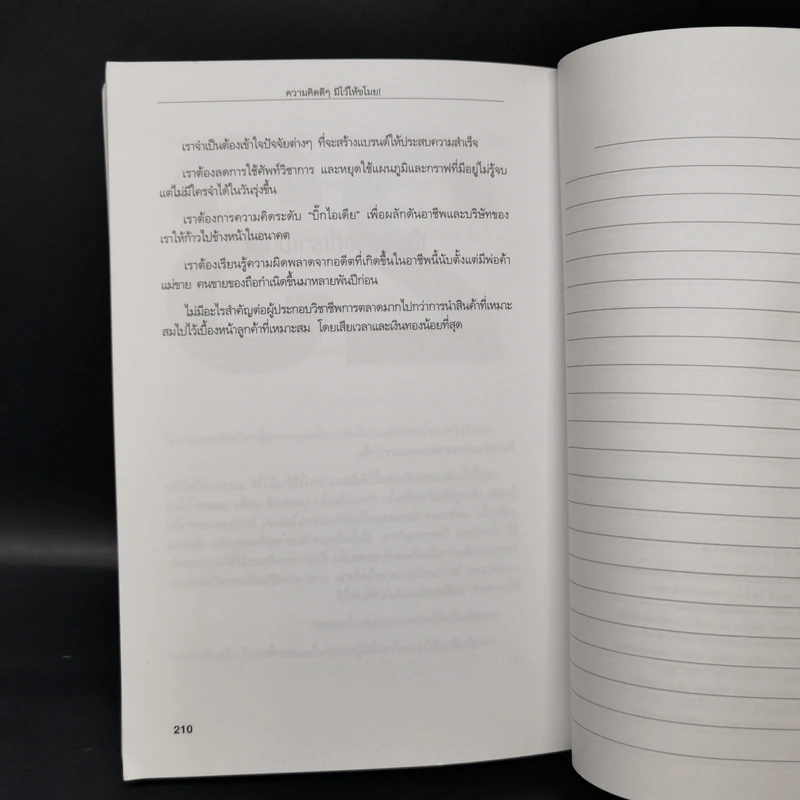 ความคิดดีๆ มีไว้ให้ขโมย!
เราจำเป็นต้องเข้าใจปัจจัยต่างๆ ที่จะสร้างแบรนด์ให้ประสบความสำเร็จ
เราต้องลดการใช้ศัพท์วิชาการ และหยุดใช้แผนภูมิและกราฟที่มีอยู่ไม่รู้จบ
แต่ไม่มีใครจำได้ในวันรุ่งขึ้น
เราต้องการความคิดระดับ “บิ๊กไอเดีย” เพื่อผลักดันอาชีพและบริษัทของ
เราให้ก้าวไปข้างหน้าในอนาคต
เราต้องเรียนรู้ความผิดพลาดจากอดีตที่เกิดขึ้นในอาชีพนี้นับตั้งแต่มีพ่อค้า
แม่ขาย คนขายของถือกำเนิดขึ้นมาหลายพันปีก่อน
ไม่มีอะไรสำคัญต่อผู้ประกอบวิชาชีพการตลาดมากไปกว่าการนำสินค้าที่เหมาะ
สมไปไว้เบื้องหน้าลูกค้าที่เหมาะสม โดยเสียเวลาและเงินทองน้อยที่สุด
210